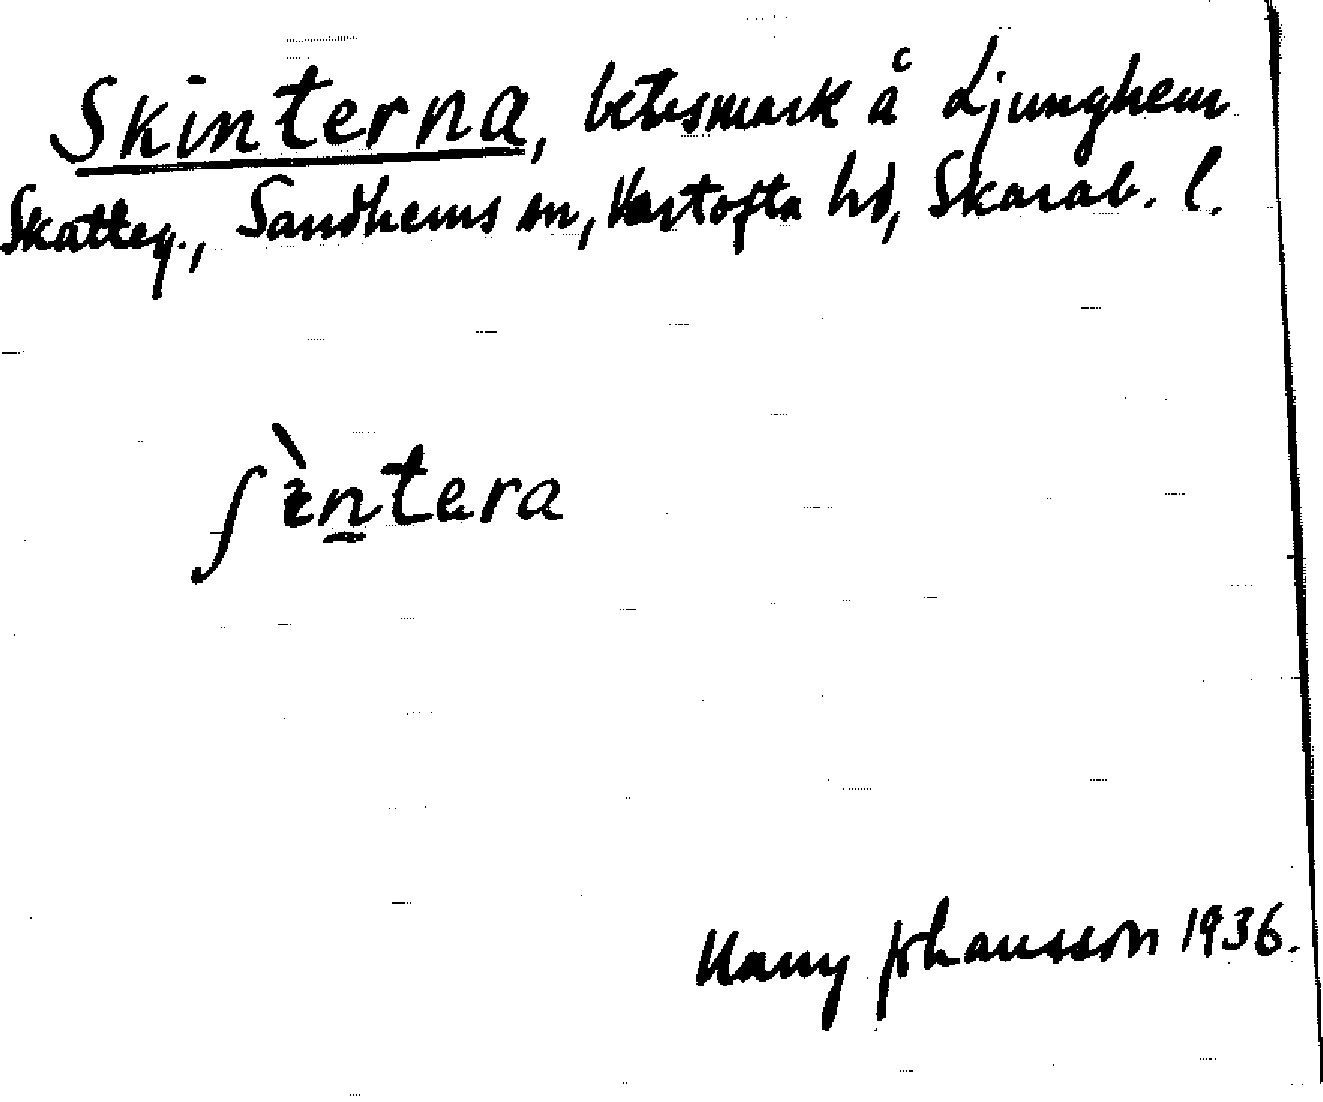 Skinterna, betesmark å Ljunghem
Skatteg., Sandhems sn, Vartofta hd, Skarab. l.
ʃὶn̠tera
Harry Johansson 1936.